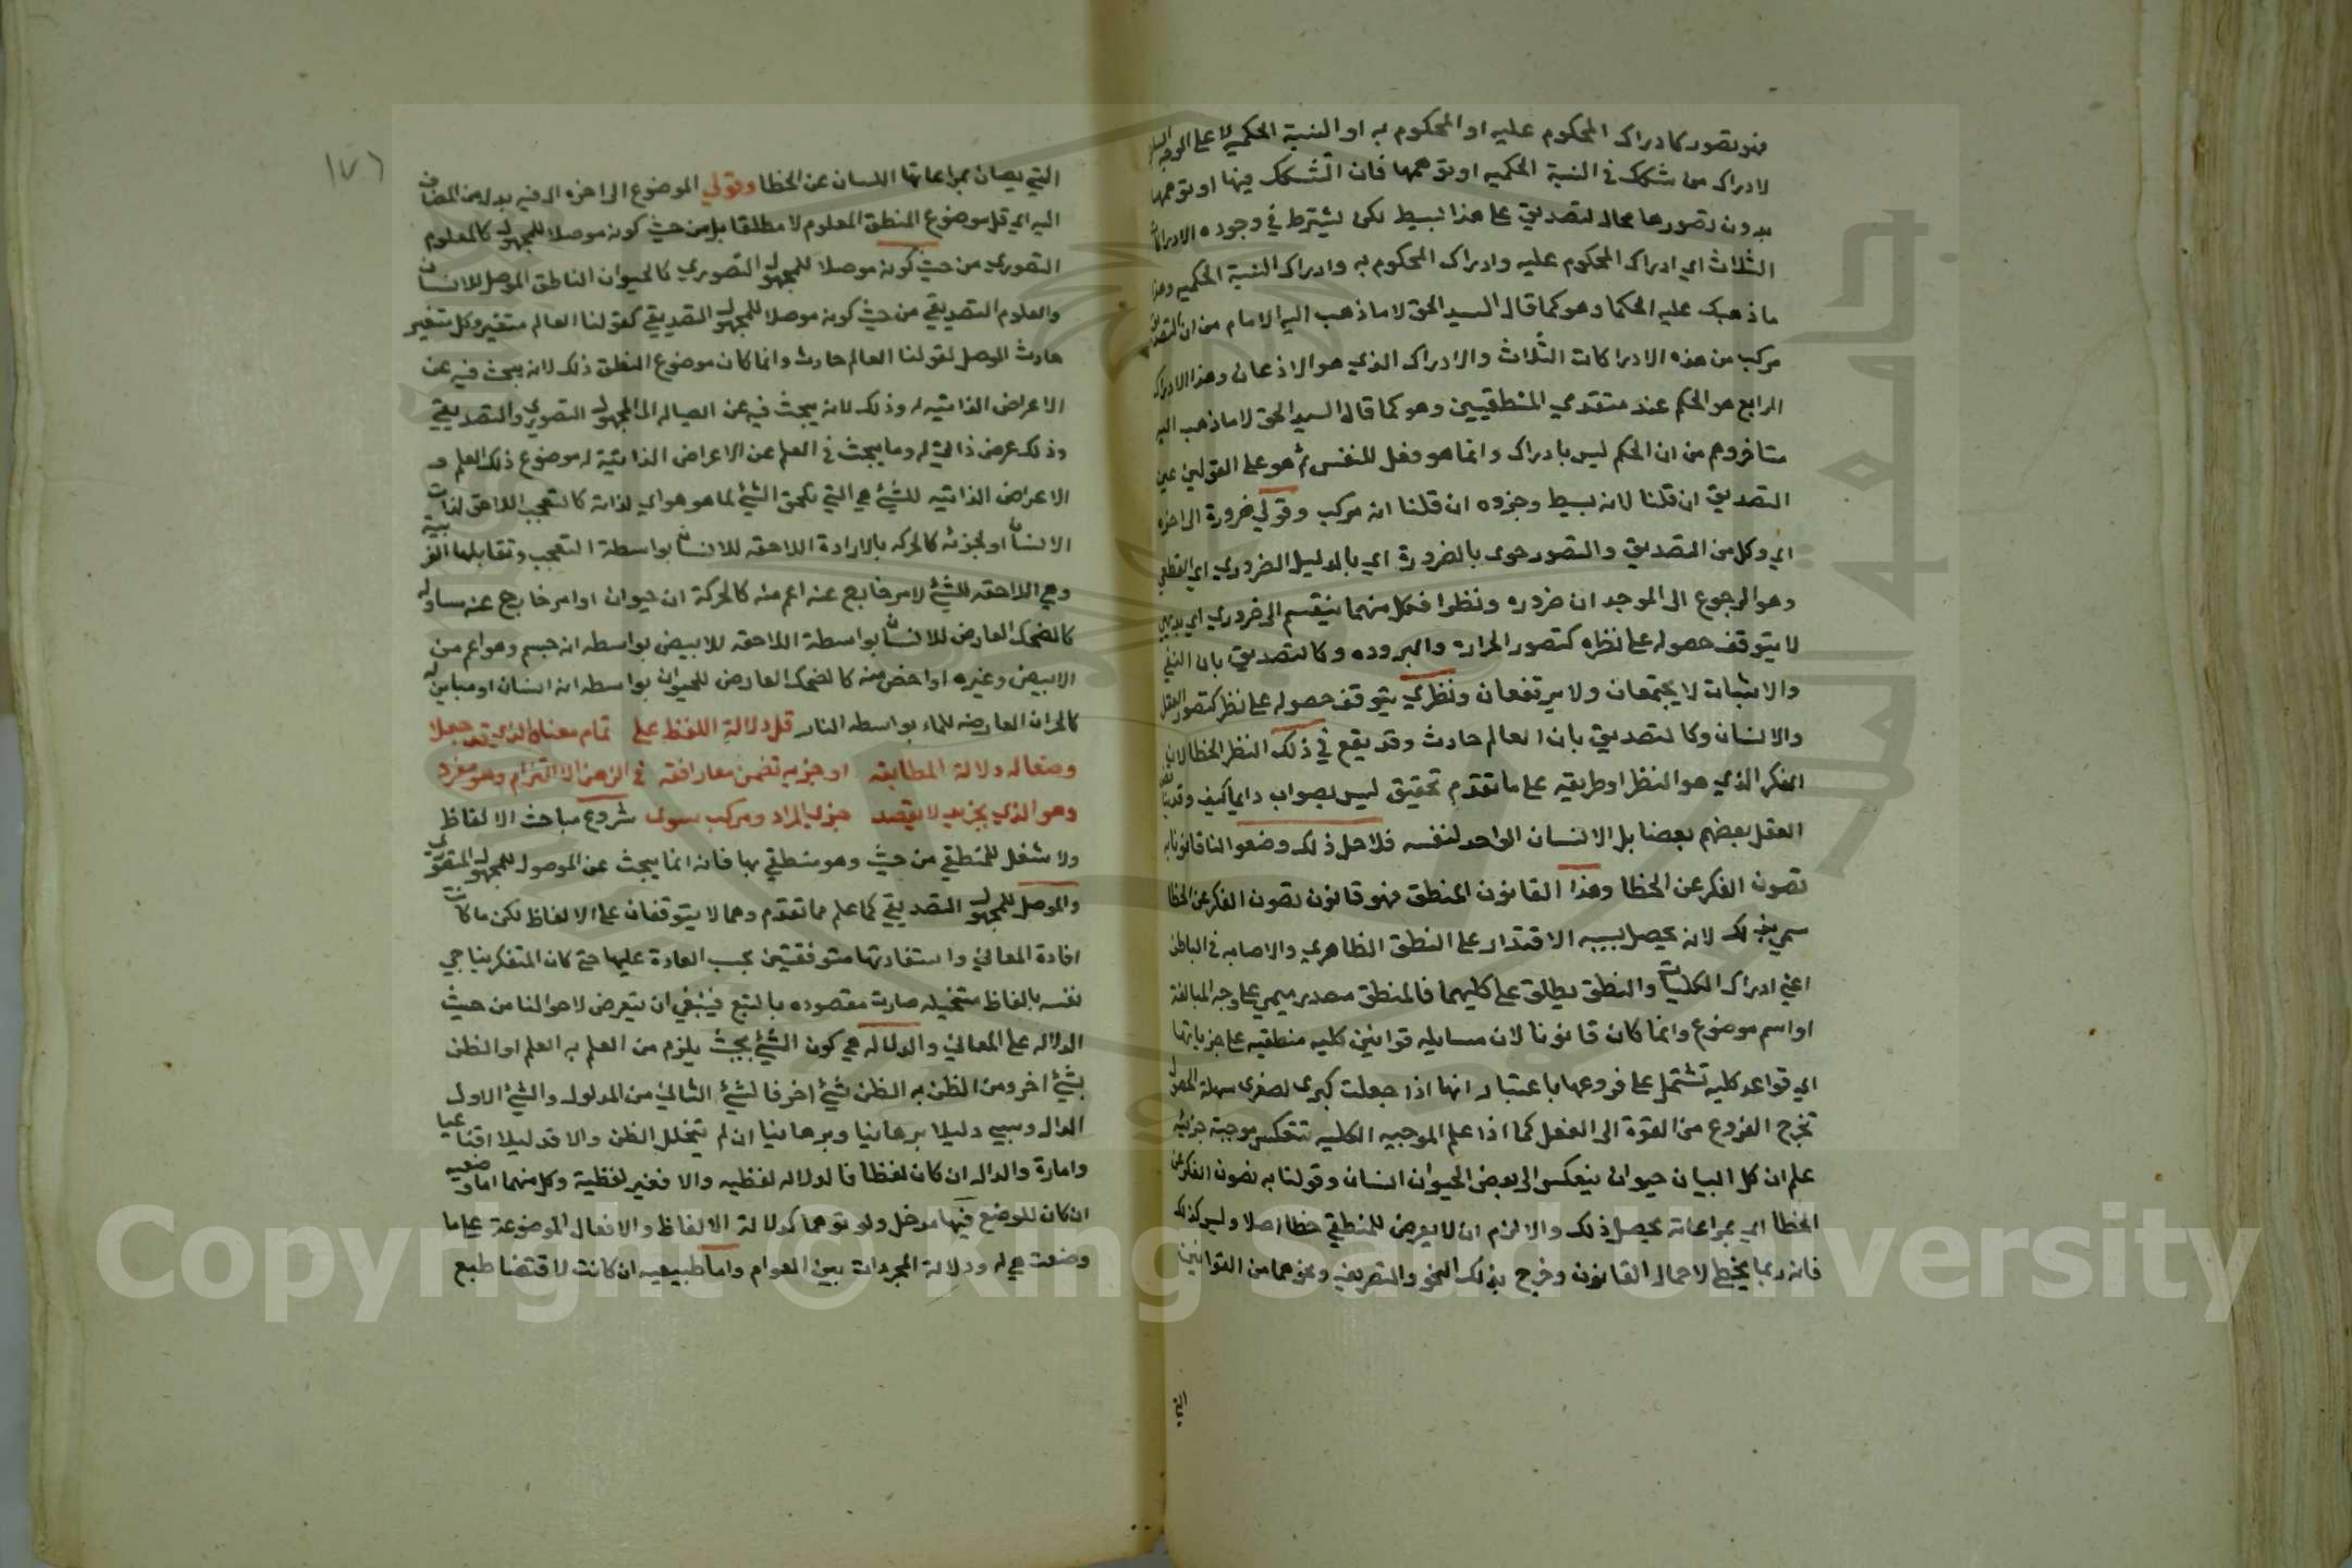 فهو تصور كادراك المحكوم عليه او المحكوم به او النسبة الحكمية لا على الوجه
لادراك من شكك في النسبة الحكميه او توهمها فان الشك فيها او توهمها
بدون تصورها محال لتصديق على هذا بسيط لكن يشترط في وجوده الادراكات
الثلاث اي ادراك المحكوم عليه وادراك المحكوم به وادراك النسبة الحكميه وهذا
ما ذهبك عليه الحكما وهو كما قال السيد الحق لا ما ذهب اليه الامام من ان التصديق
مركب من هذه الادراكات الثلاث والادراك الذي هو الاذعان وهذا الادراك
الرابع هو الحكم عند متقدمي المنطقيين وهو كما قال السيد الحق لا ما ذهب اليه
متاخروهم من ان الحكم ليس بادراك وانما هو فعل للنفس ثم هو على القولين عين
التصديق ان قلنا لانه بسيط وجزوه ان قلنا انه مركب وقولي ضرورة الى اخره
اي وكل من التصديق والتصور حوى بالضرورة اي بالدليل الضروري اي القطعي
وهو الرجوع الى الموجد ان ضروره ونظرا فكل منهما ينقسم الى ضروري اي بديهي
لا يتوقف حصوله على نظراه كتصور الحرارة والبروده وكالتصديق بان النفي
والاثبات لا يجتمعان ولا يرتفعان ونظري يتوقف حصوله على نظر كتصور العقل
والانسان وكالتصديق بان العالم حادث وقد يقع في ذلك النظر الخطا لان
الفكر الذي هو النظر او طريقه على ما تقدم تحقيق ليس بصواب دايما كيف وقد
العقل بعضهم بعضا بل الانسان الواحد لنفسه فلاجل ذلك وضعوا لنا قانونا به
تصون الفكر عن الخطا وهذا القانون المنطق فهو قانون تصون الفكر عن الخطا
سمي بذلك لانه يحصل بسببه الاقتدار على النطق الظاهري والاصابه في الباطن
اعني ادراك الكليات والنطق يطلق على كليهما فالمنطق مصدر ميمي على وجه المبالغة
او اسم موضوع وانما كان قانونا لان مسايله قوانين كليه منطقيه على جزياتها
اي قواعد كليه تشتمل على فروعها باعتبار انها اذا جعلت كبرى لصغرى سهلة الحصول
تخرج الفروع من القوة الى الفعل كما اذا علم الموجبه الكليه تنعكس موجبة جزئية
علم ان كل البيان حيوان ينعكس الى بعض الحيوان انسان وقولنا به تصون الفكر عن
الخطا اي بمراعاته يحصل ذلك والا لزم ان لا يعرض للمنطقي خطا اصلا وليس كذلك
فانه ربما يخطي لاهمال القانون وخرج بذلك النحو والتصريف ونحوهما من القوانين
التي
١٧٦
التي يصان بمراعاتها اللسان عن الخطا وقولي الموضوع الى اخره ال فيه بدل من المضاف
اليه اي قل موضوع المنطق المعلوم لا مطلقا بل من حيث كونه موصلا للمجهول كالمعلوم
التصوري من حيث كونه موصلا للمجهول التصوري كالحيوان الناطق الموصل للانسان
والعلوم التصديقي من حيث كونه موصلا للمجهول التصديقي كقولنا العالم متغير وكل متغير
حادث الموصل لقولنا العالم حادث وانما كان موضوع المنطق ذلك لانه يبحث فيه عن
الاعراض الذاتيه له وذلك لانه يبحث فيه عن ايصاله الى المجهول التصوري والتصديقي
وذلك عرض ذاتي له وما يبحث في العلم عن الاعراض الذاتية له موضوع ذلك العلم و
الاعراض الذاتيه للشئ هي التي تلحق الشئ لما هو هو اي لذاته كالتعجب اللاحق لذات
الانسان او لجزئه كالحركه بالارادة اللاحقه للانسان بواسطة التعجب وتقابلها الغريبة
وهي اللاحقه للشئ لامر خارج عنه اعم منه كالحركة ان حيوان او امر خارج عنه مساو له
كالضحك العارض للانسان بواسطة اللاحقه للابيض بواسطه انه جسم وهو اعم من
الابيض وغيره او اخص منه كالضحك العارض للحيوان بواسطه انه انسان او مباين له
كالحراره العارضه للماء بواسطه النار قل دلالة اللفظ على تمام معناه الذي قد جعلا
وضعا له دلالة المطابقه او جزيه تضمن معا رافقه في الذهن الالتزام وهو مفرد
وهو الذي بجزيه لا يقصد جزي المراد ومركب سوى شروع مباحث الالفاظ
ولا شغل للمنطقي من حيث وهو منطقي بها فانه انما يبحث عن الموصول للمجهول التصوري
والموصل للمجهول التصديقي كما علم مما تقدم وهما لا يتوقفان على الالفاظ لكن ما كانت
افادة المعاني واستفادتها متوقفتين بحسب العادة عليها حتى كان المتفكر يناجي
نفسه بالفاظ متخيله صارت مقصوده بالتبع فينبغي ان يتعرض لاحوالنا من حيث
الدلاله على المعاني والدلاله هي كون الشئ بحيث يلزم من العلم به العلم او الظن
بشئ اخر ومن الظن به الظن بشئ اخر فالشئ الثاني من المدلول والشئ الاول
الدال وسمي دليلا برهانيا وبرهانيا ان لم يتخلل الظن والا قد ليلا اقناعيا
وامارة والدال ان كان لفظا فالدلاله لفظيه والا فغير لفظية وكل منهما اما وضعيه
ان كان للوضع فيها مدخل ولو توهما كدلالة الالفاظ والافعال الموضوعة على ما
وضعت هي له ودلالة المجردات بين العوام واما طبيعيه ان كانت لاقتضا طبع
Copyright © King Saud University